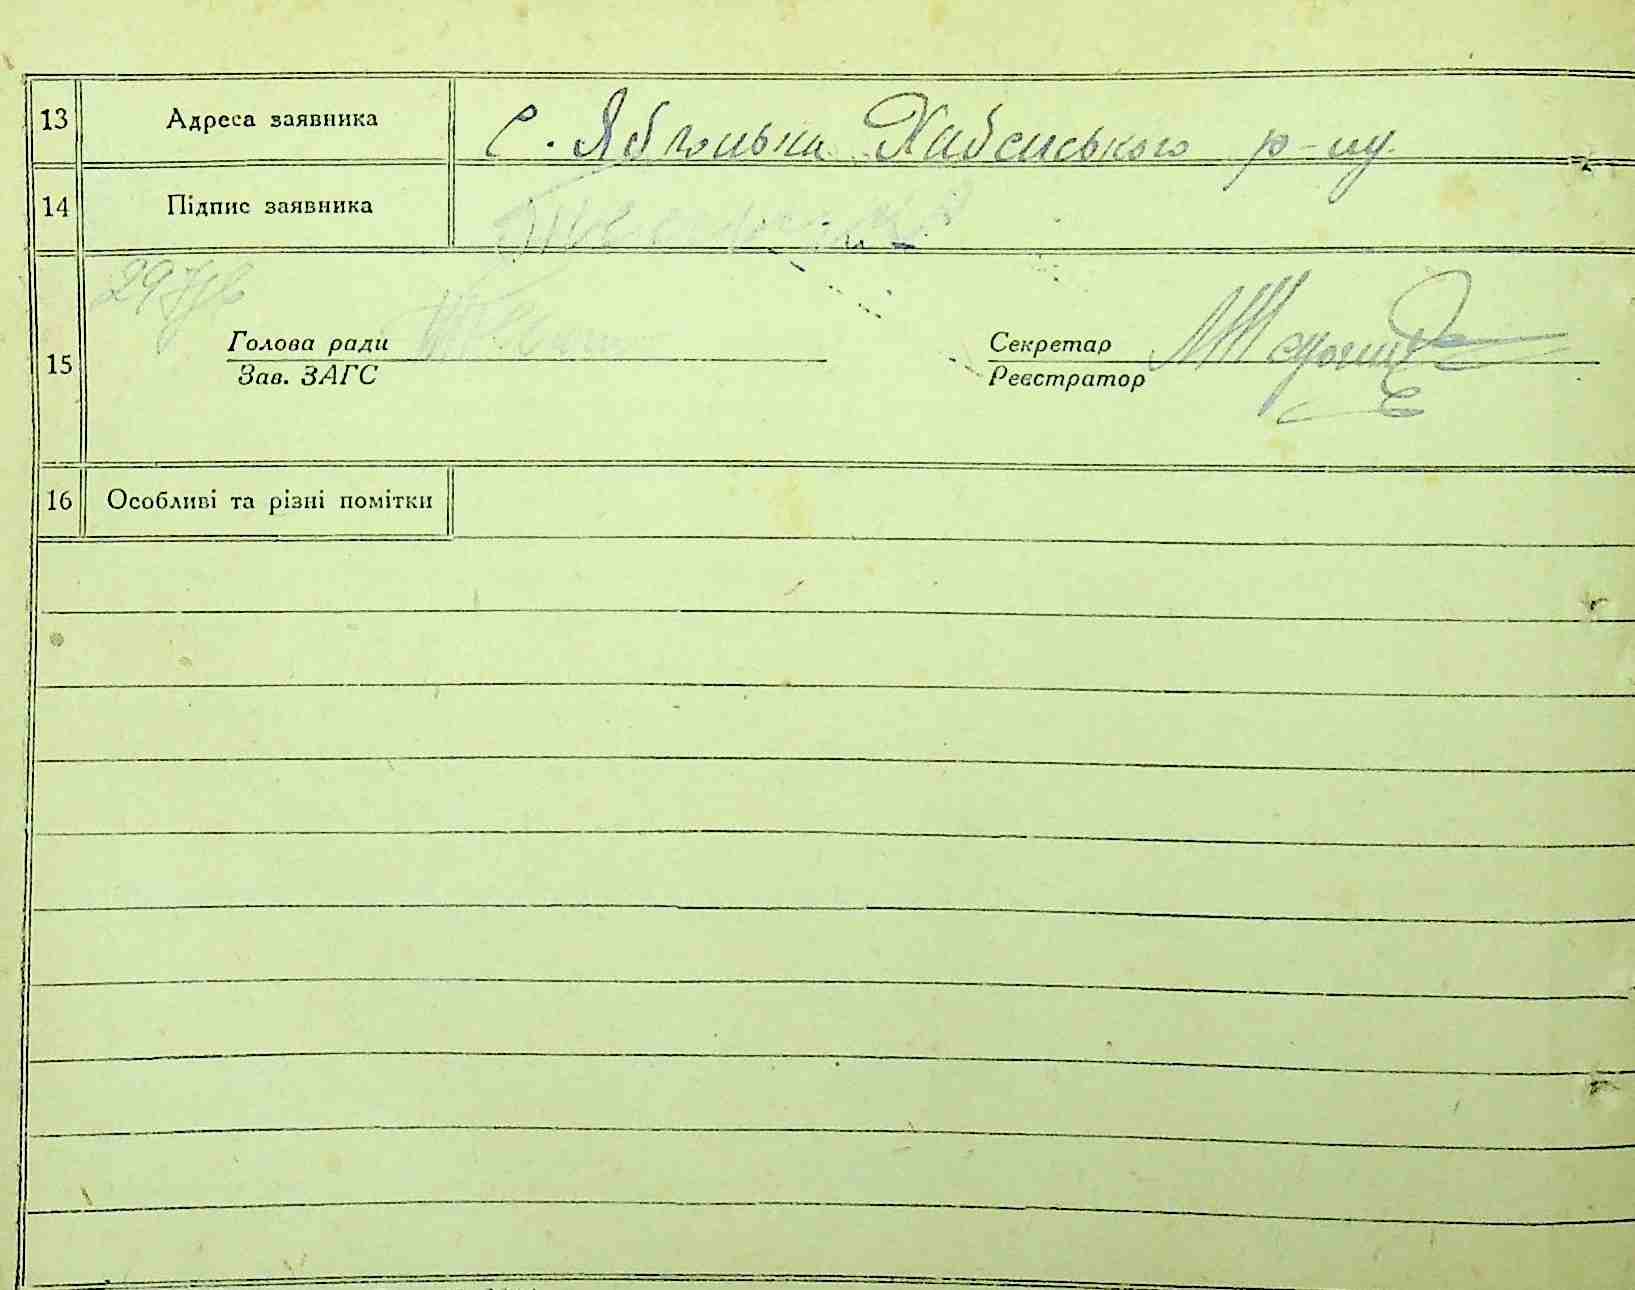 13 Адреса заявника С. Яблонька Хабенського р-ну
14 Підпис заявника
15
Голова ради
Зав. ЗАГС
Секретар
Реєстратор
16 Особливі та різні помітки